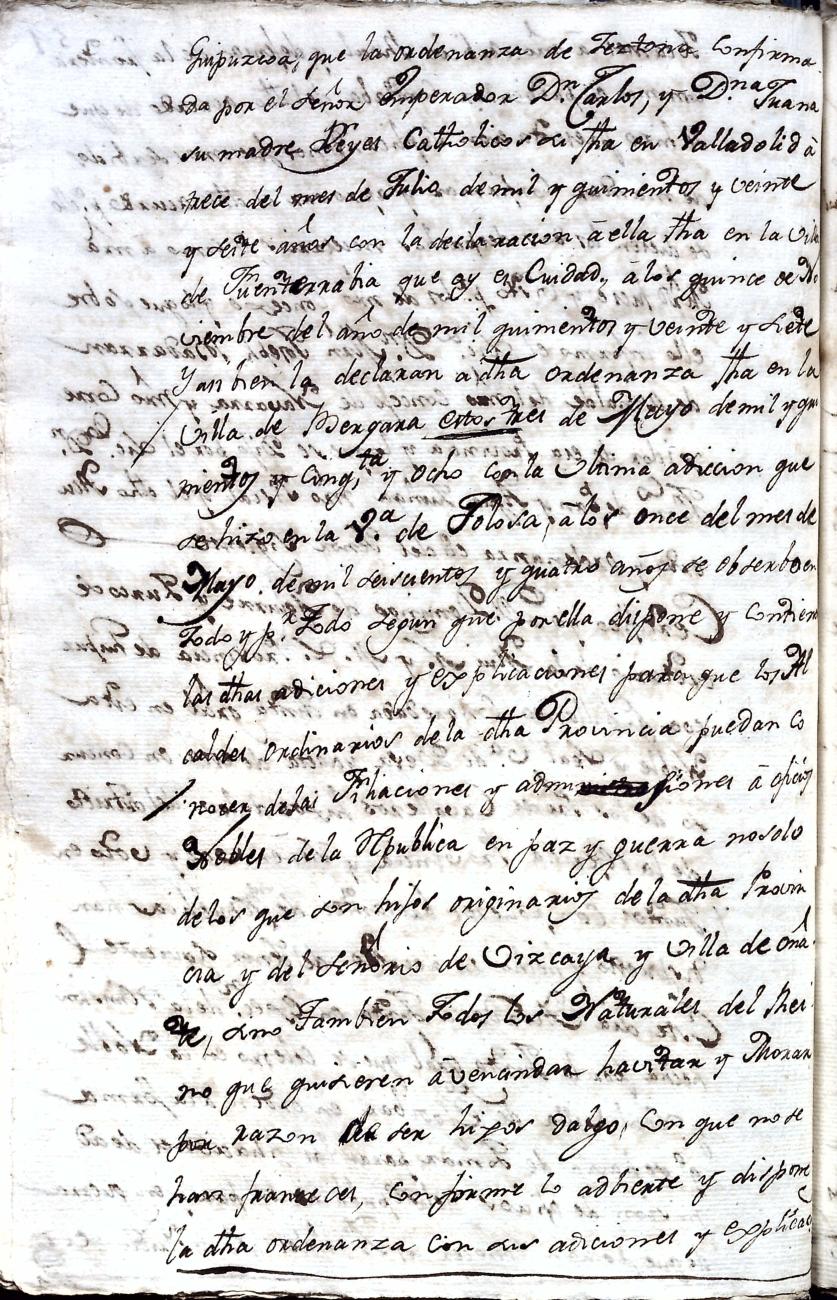 Guipuzcoa, que la ordenanza de Zeztona confirma
da por el señor Emperador Dn Carlos, y Dna Juana
su madre Reyes Catholicos su fha en Valladolid à
trece del mes de Julio de mil y quinientos y veinte
y seite años con la declaracion à ella fha en la villa
de Fuenterrabia que oy es Cuidad, à los quince de No
viembre del año de mil quinientos y veinte y siete
y tanbien la declaran a dha ordenanza fha en la
villa de Bergara estos tres de Mayo de mil y qui
nientos y cinqta y ocho con la Ultima adiccion que
se hizo en la Va de Tolosa, à los once del mes de
Mayo de mil seiscientos y quatro años se obserbo en
todo y pr todo segun que por ella dispone y contien
las dhas adiciones y explicaciones para que los Al
caldes ordinarios de la dha Provincia puedan co
nozer de las Filiaciones y admisiones à oficios
Nobles de la Republica en paz y guerra no solo
de los que son hijos originarios de la dha Provin
cia y del señorio de Vizcaya y villa de Oña
te, sino tambien todos los Naturales del Rei
no que quisieren àvencindar havitar y Morar
por razon de ser hijos dalgo, con que no se
han franceses, conforme lo adbierte y dispone
la dha ordenanza con sus adiciones y explicac